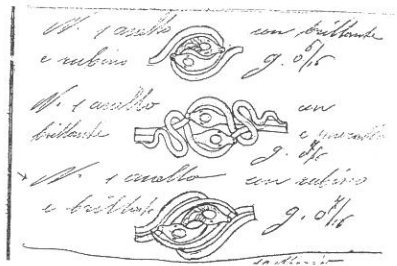 N. 1 anello con brillante
e rubino g. 0 6/16
N. 1 anello con
brillante e
g.
N. 1 anello con rubino
e brillate g. 0 7/16